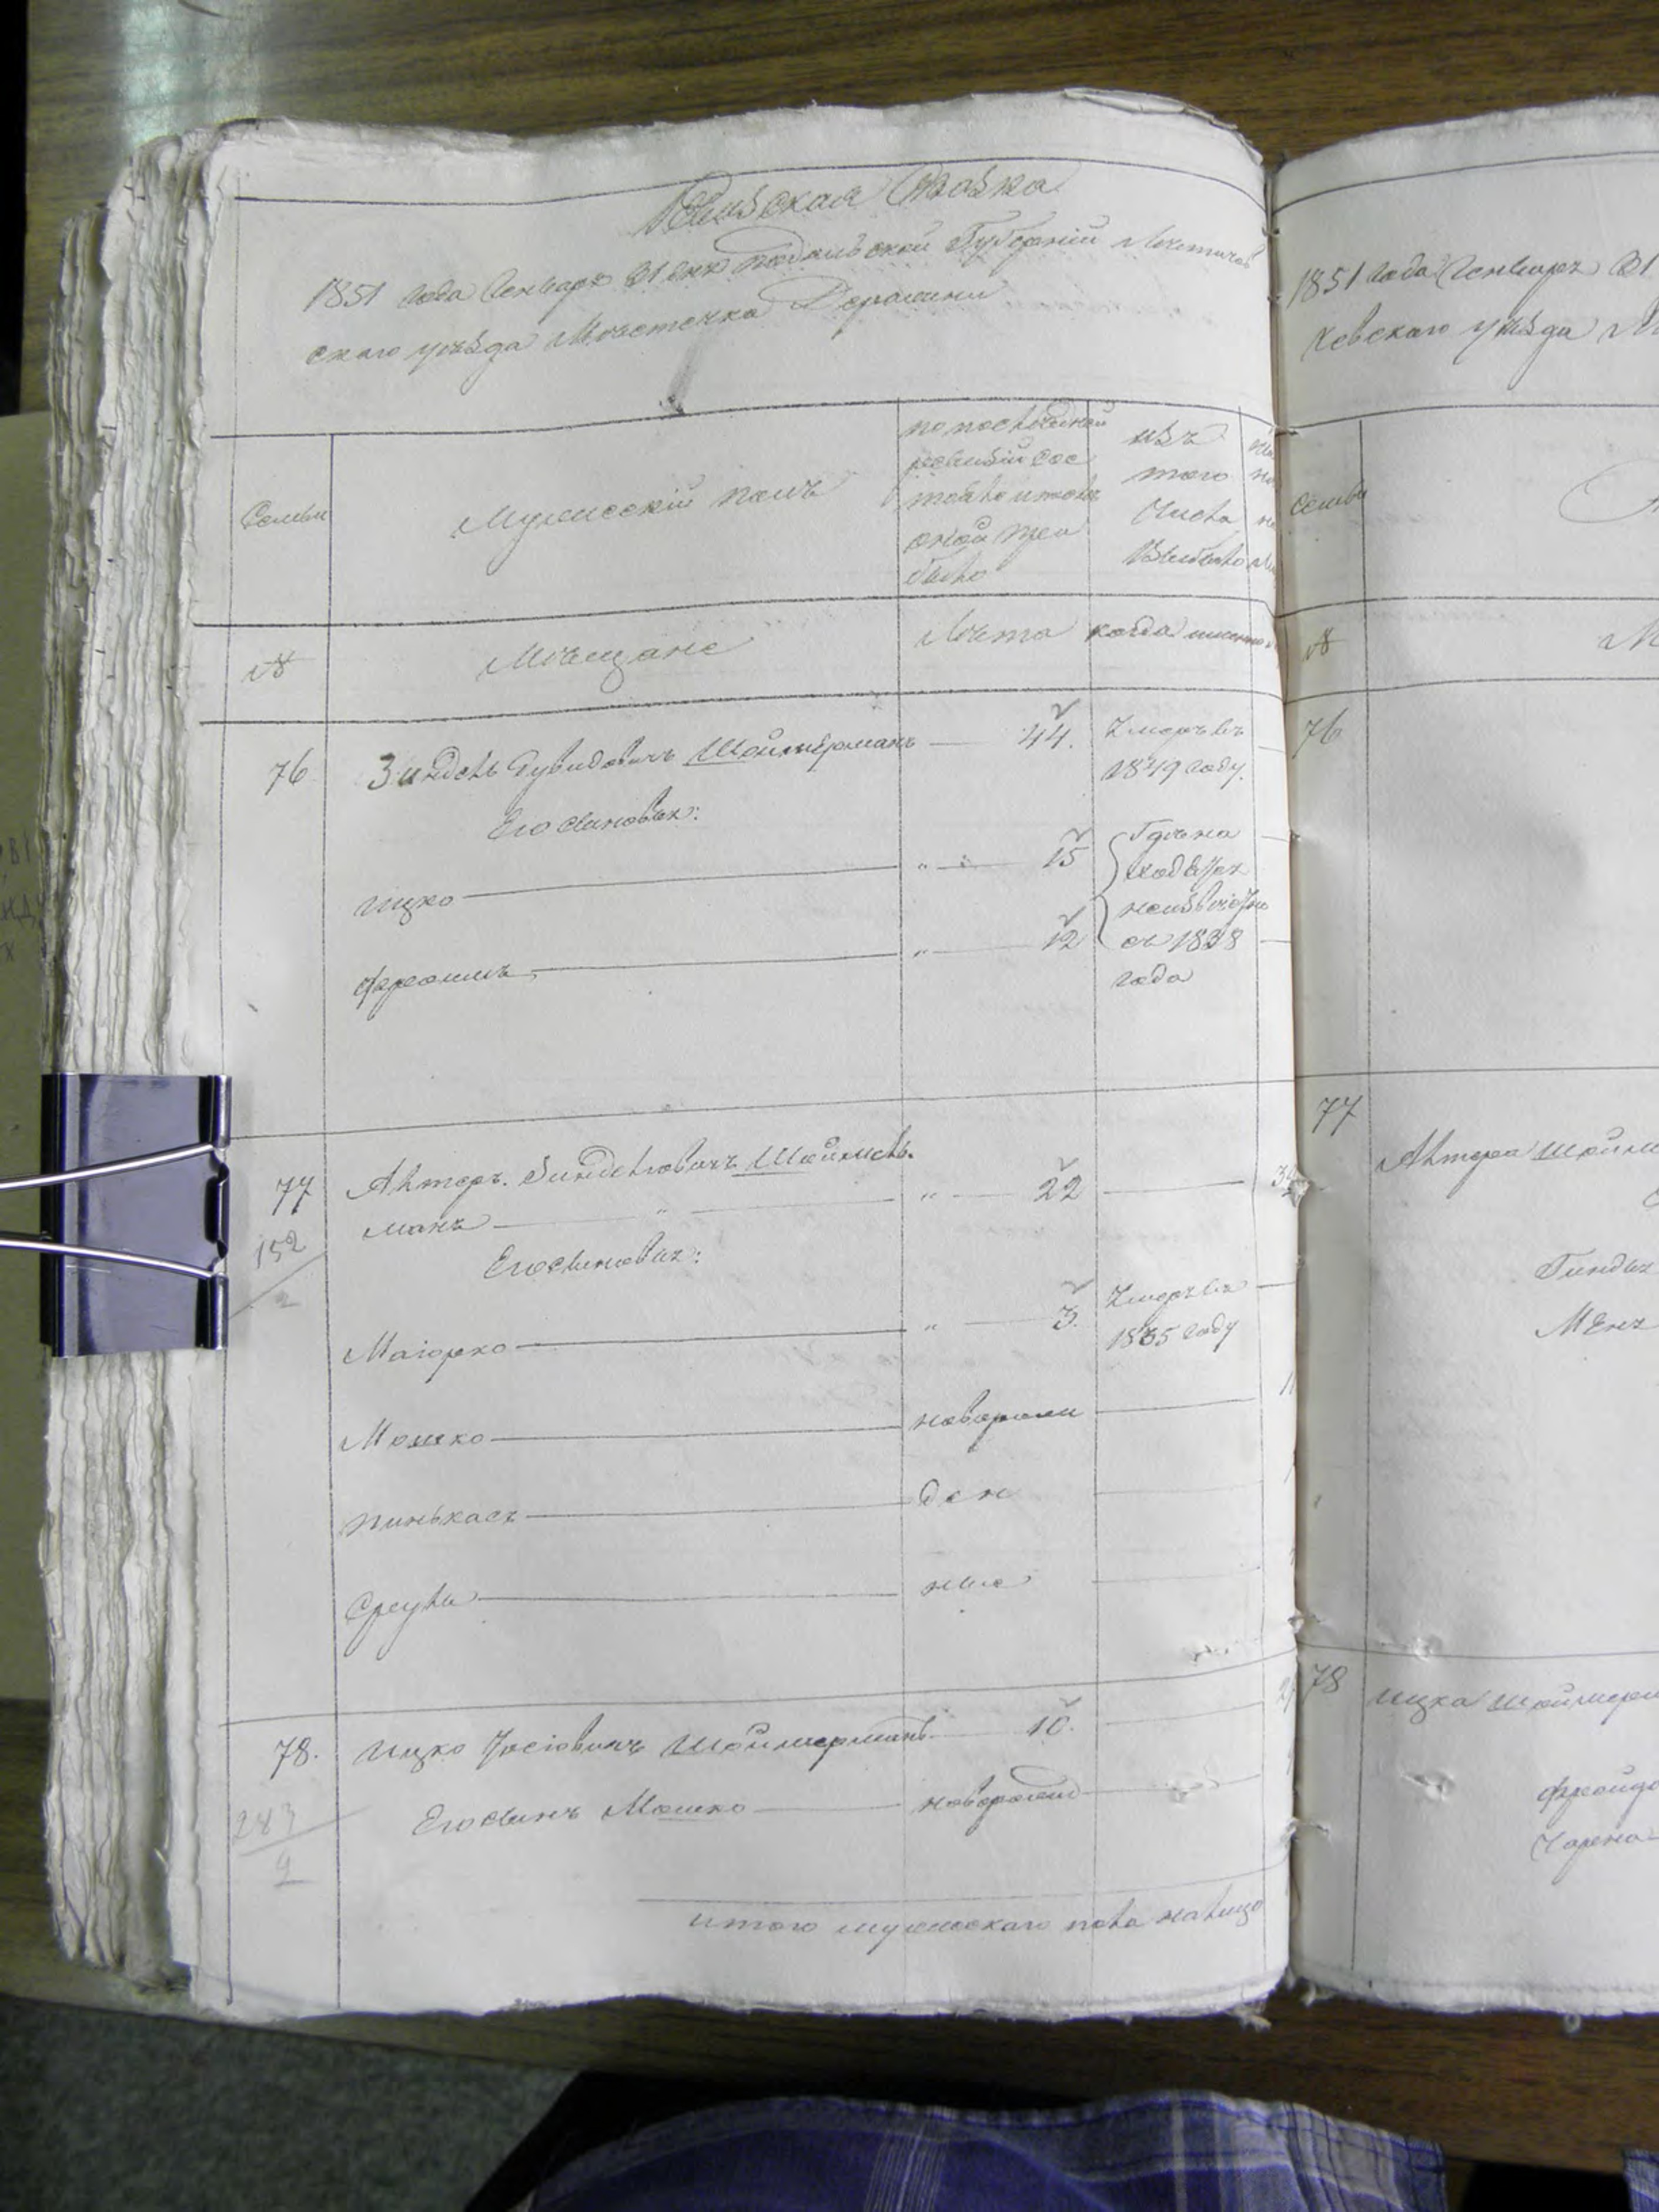 Ревизская Сказка
1851 года Генваря 31 дня Подольской Губернии Летичев
скаго уезда Местечка Деражни
Семьи
Мужескій полъ
по последней
ревизіи сос
тояло и после
оной при
было
изъ
того
Числа
Выбыло
№
Мещане
Лета
когда именно
76
Зиндель Дувидовичъ Шойхерманъ — 44.
Умеръ въ
1849 году.
Его сыновья:
Ицко — " — 15
Фроимъ — " — 12
Где на
ходятся
неизвестно
съ 1838
года
77
Алтеръ Зинделовичъ Шойхер
манъ — " — 22
152
2
Его сыновья:
Маіорко — " — 3.
Умеръ въ
1835 году
Мошко — новорож
Пинькасъ — ден
Сруль — ные
78.
Ицко Іосіовичъ Шойхерманъ — 10.
Его сынъ Мошко — новорожд
243
4
итого мужескаго пола налицо
1851 года Генваря 31
ковскаго уезда М
семьи
№
М
76
77
Алтера Шойх
Гиндя
Меня
78
Ицка Шойхер
Фрейда
Чарна